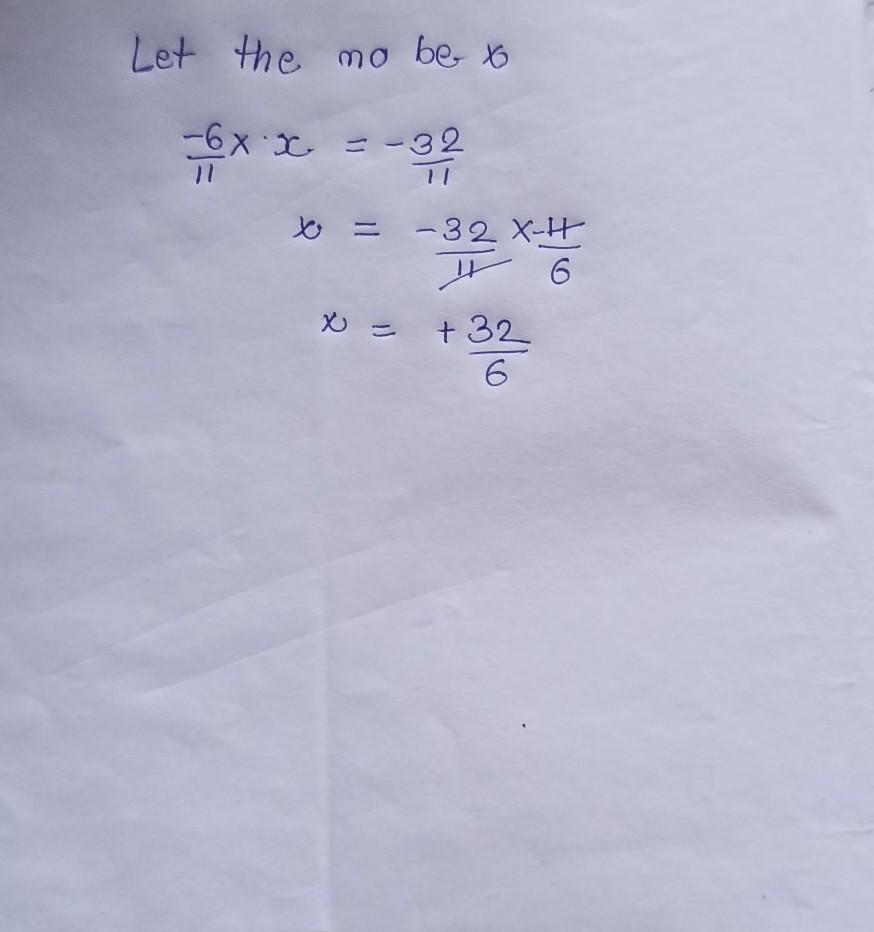 Let the no be x
-6/11 x · x = -32/11
x = -32/11 x -11/6
x = +32/6